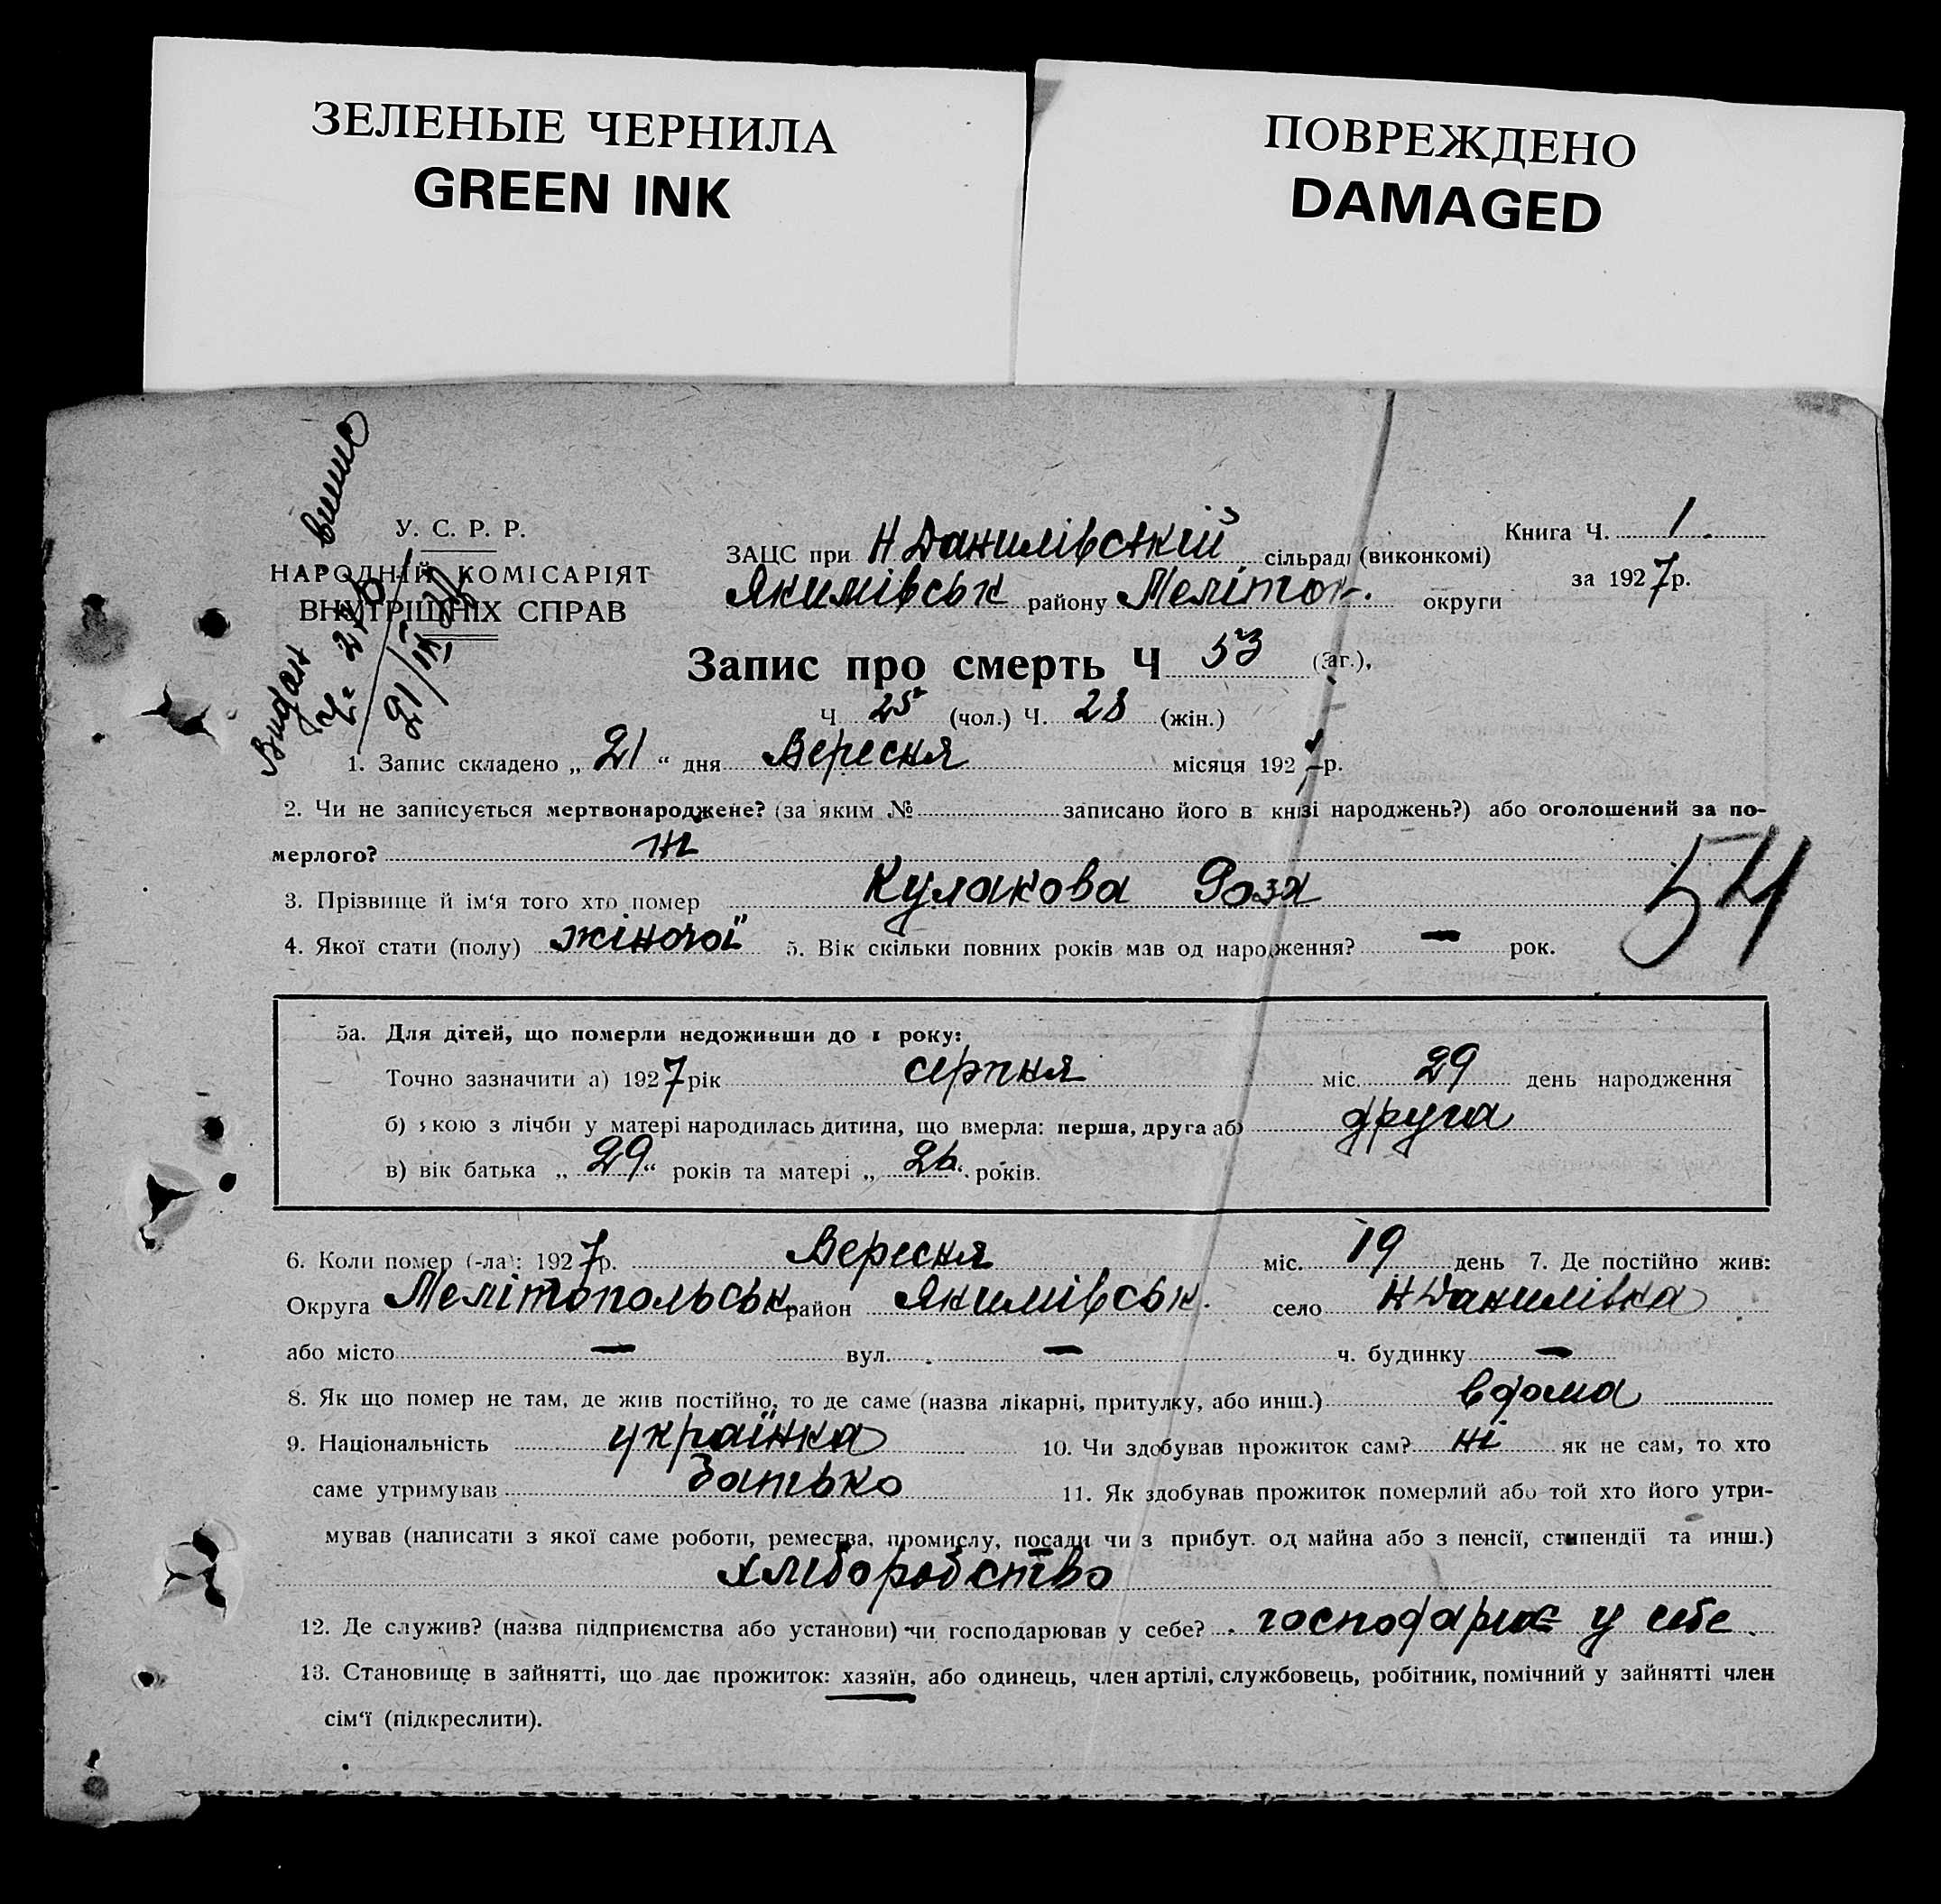 ЗЕЛЕНЫЕ ЧЕРНИЛА
GREEN INK
ПОВРЕЖДЕНО
DAMAGED
Видан випис
Ч= 
21/IX
У. С. Р. Р.
НАРОДНІЙ КОМІСАРІЯТ
ВНУТРІШНІХ СПРАВ
ЗАЦС при Н Данилівській сільраді (виконкомі)
Якимівськ району Меліток. округи
Книга Ч. 1.
за 1927 р.
Запис про смерть Ч 53 (заг.),
Ч 25 (чол.) Ч. 28 (жін.)
1. Запис складено „ 21 “ дня Вересня місяця 1927 р.
2. Чи не записується мертвонароджене? (за яким № записано його в книзі народжень?) або оголошений за по-
мерлого? ні
54
3. Прізвище й ім‘я того хто помер Кулакова Роза
4. Якої стати (полу) жіночої 5. Вік скільки повних років мав од народження? — рок.
5а. Для дітей, що померли недоживши до 1 року:
Точно зазначити а) 1927 рік серпня міс. 29 день народження
б) якою з лічби у матері народилась дитина, що вмерла: перша, друга або друга
в) вік батька „ 29 “ років та матері „ 26 “ років.
6. Коли помер (-ла): 1927 р. Вересня міс. 19 день 7. Де постійно жив:
Округа Мелітопольськ район Якимівськ. село Н Данилівка
або місто — вул. — ч. будинку —
8. Як що помер не там, де жив постійно, то де саме (назва лікарні, притулку, або инш.) вдома
9. Національність українка 10. Чи здобував прожиток сам? ні як не сам, то хто
саме утримував батько 11. Як здобував прожиток померлий або той хто його утри-
мував (написати з якої саме роботи, ремества, промислу, посади чи з прибут. од майна або з пенсії, стипендії та инш.)
хліборобство
12. Де служив? (назва підприємства або установи) чи господарював у себе? господарює у себе.
13. Становище в зайнятті, що дає прожиток: хазяїн, або одинець, член артілі, службовець, робітник, помічний у зайнятті член
сім‘ї (підкреслити).